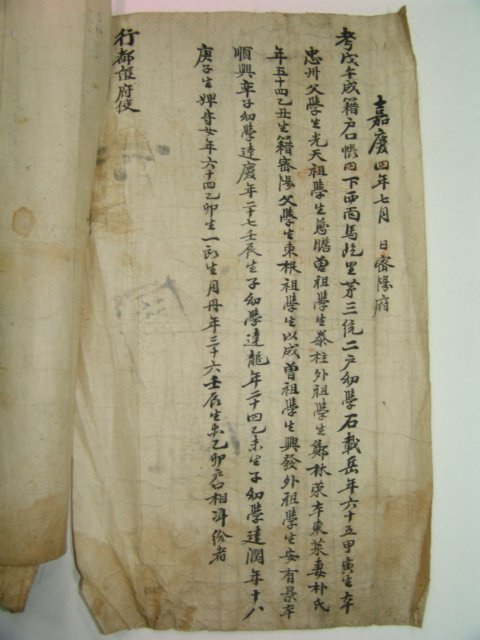 嘉慶四年七月 日密陽府
考戊午成籍戶口帳內下西面馬屹里第三統二戶幼學石載岳年六十五甲寅生本
忠州父學生光天祖學生曾祖學生泰柱外祖學生鄭林榮本東萊妻朴氏
年五十四乙丑生籍密陽父學生東根祖學生以成曾祖學生興發外祖學生安有景本
順興率子幼學達慶年二十七壬辰生子幼學達龍年二十四乙未生子幼學達潤年十八
庚子生婢女年六十四乙卯生一所生月丹年三十六壬辰生乙卯戶口相準給者
行都護府使